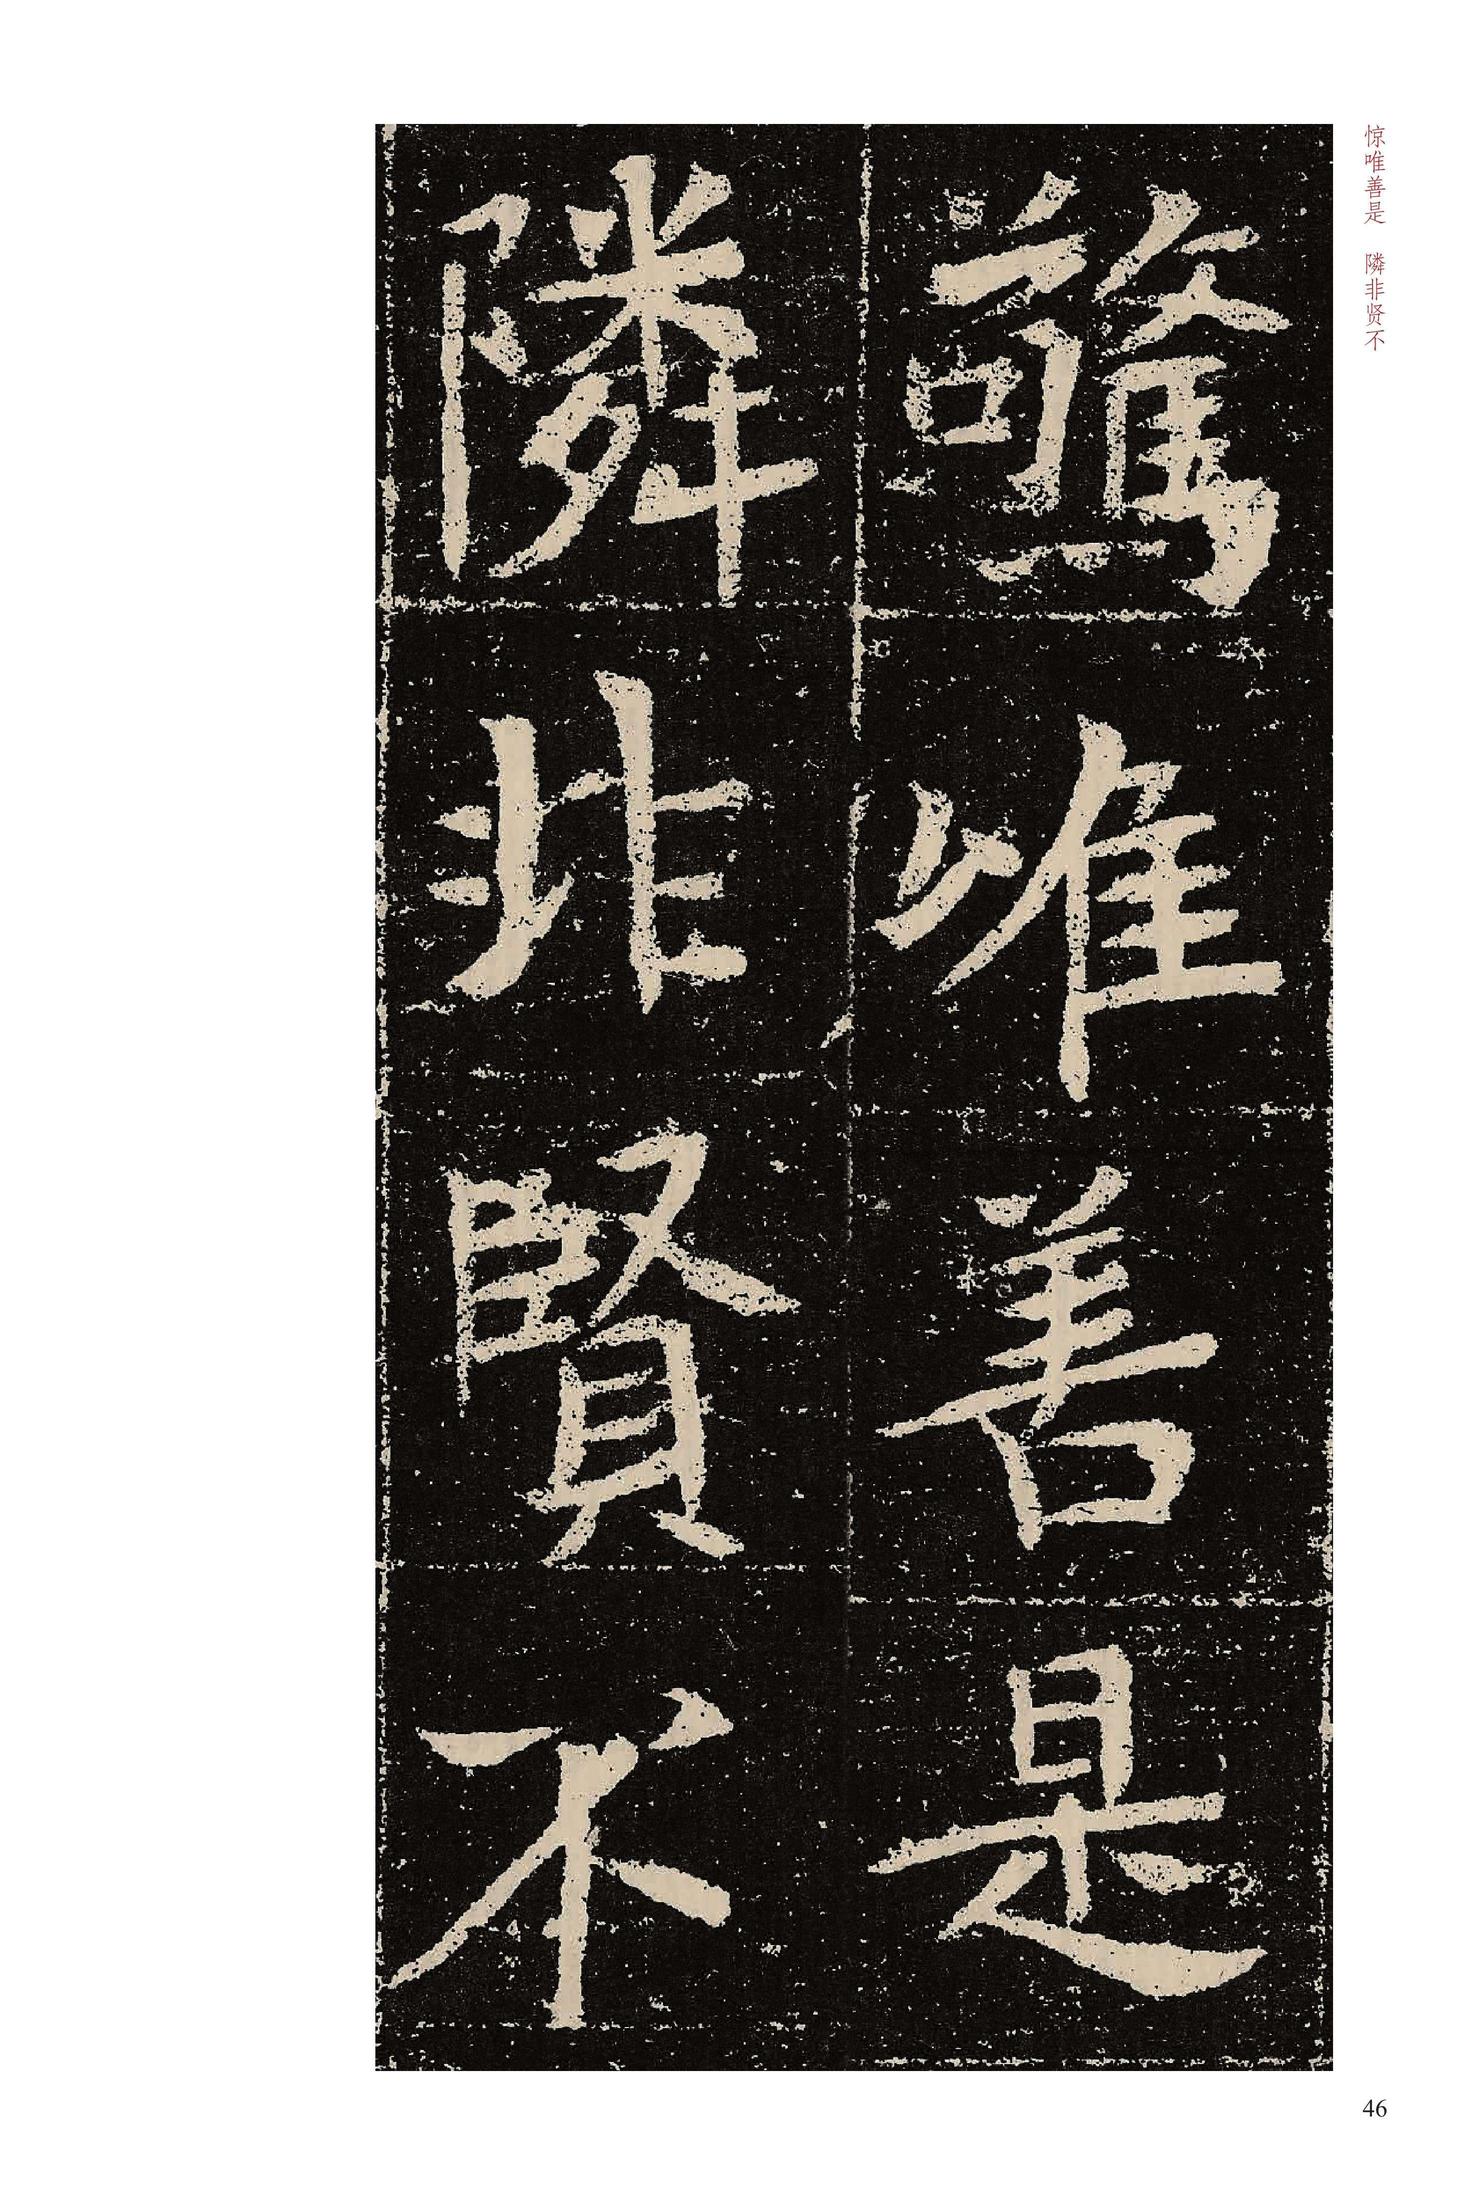 驚唯善是
隣非賢不
惊唯善是 隣非贤不
46